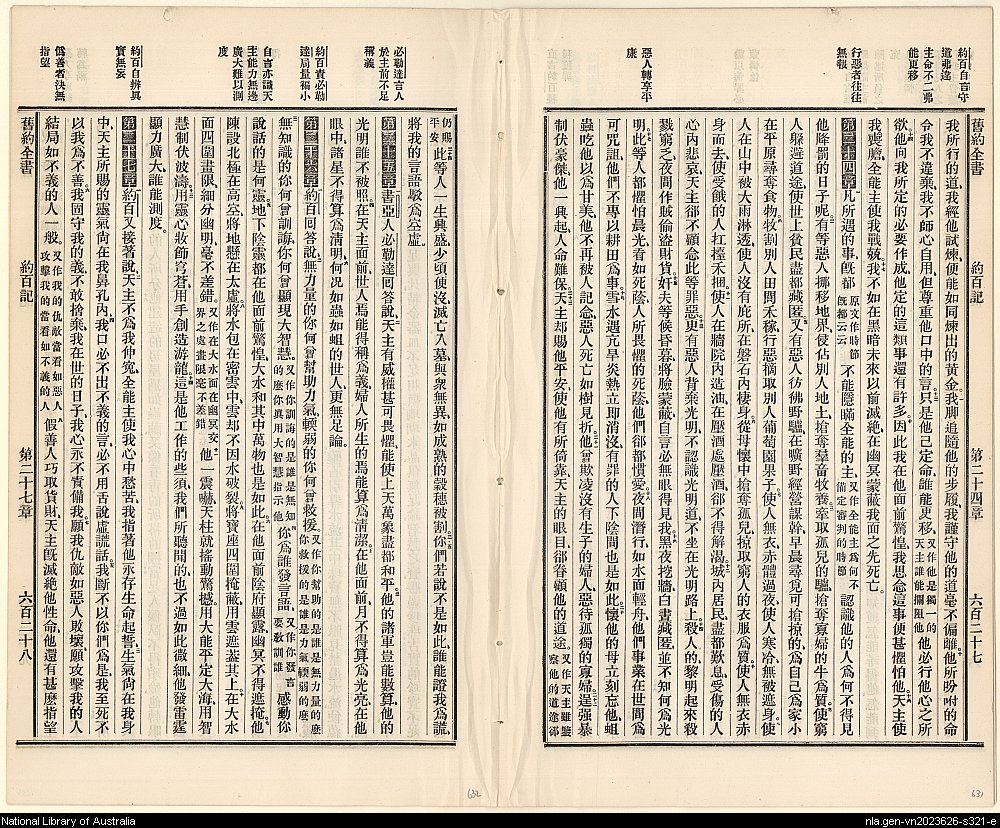 約百自言守道弗違
主命不二弗能更移
行惡者往往無報
惡人轉享平康
舊約全書 約百記 第二十四章 六百二十七
我所行的道我經他試煉便能如同煉出的黃金我脚追隨他的步履我謹守他的道毫不偏離他所吩咐的命
令我不違棄我不師心自用但尊重他口中的言只是他己定命誰能更移又作他是獨一的天主誰能攔阻他他必行他心之所
欲他向我所定的必要作成他定的這類事還有許多因此我在他面前驚惶我思念這事便甚懼怕他天主使
我喪膽全能主使我戰兢我不如在黑暗未來以前滅絕在幽冥蒙蔽我面之先死亡
第二十四章凡所遇的事旣都原文作時節旣都云云不能隱瞞全能的主又作全能主爲何不備定審判的時節認識他的人爲何不得見
他降罰的日子呢有等惡人挪移地界使佔別人地土搶奪羣畜牧養牽取孤兒的驢搶奪寡婦的牛爲質使窮
人躱避道途使世上貧民盡都藏匿又有惡人彷彿野驢在曠野經營謀幹早晨尋覓可搶掠的爲自己爲家小
在平原尋奪食物牧割別人田間禾稼行惡摘取別人葡萄園果子使人無衣赤體過夜使人寒冷無被遮身使
人在山中被大雨淋透使人沒有庇所在磐石內棲身從母懷中搶奪孤兒掠取窮人的衣服爲質使人無衣赤
身而去使受餓的人扛擡禾捆使人在牆院內造油在壓酒處壓酒卻不得解渴城內居民盡都歎息受傷的人
心內悲哀天主卻不顧念此等罪惡更有惡人背棄光明不認識光明道不坐在光明路上殺人的黎明起來殺
戮窮乏夜間作賊偷盜財貨奸夫等候昏暮將臉蒙蔽自言必無眼得見我黑夜挖牆白晝藏匿並不知何爲光
明此等人都懼怕晨光看如死蔭人所懼怕的死蔭他們卻都慣愛夜間潛行如水面輕舟他們事業在世間爲
可咒詛他們不專以耕田爲事雪水遇亢旱炎熱立卽消沒有罪的人下陰間也是如此懷他的母立刻忘他蛆
蟲吃他以爲甘美他不再被人記念惡人死亡如樹見折他曾欺凌沒有生子的婦人惡待孤獨的寡婦逞強暴
制伏豪傑他一興起人命難保天主却賜他平安使他有所倚靠天主的眼目卻眷顧他的道途又作天主雖鑒察他的道途卻
必勒達言人於主前不足稱義
約百責必勒達局量褊小
自言亦識天主能力無邊廣大難以測度
約百自辨異實無妄
僞善者決無指望
仍賜平安此等人一生興盛少頃便沒滅亡入墓與衆無異如成熟的穀穗被割你們若說不是如此誰能證我爲謊
將我的言語駁爲空虛
第二十五章書亞人必勒達回答說天主有威權甚可畏懼能使上天萬象盡都和平他的諸軍豈能數算他的
光明誰不被照在天主面前世人焉能得稱爲義婦人所生的焉能算爲清潔在他面前月不得算爲光亮在他
眼中諸星不得算爲清明何况如蟲如蛆的世人更無足論
第二十六章約百回答說無力量的你何曾幫助力氣輭弱的你何曾救援又作你幫助的是誰是無力量的麽你救援的是誰是力氣輭弱的麽
無知識的你何曾訓誨你何曾顯現大智慧又作你訓誨的是誰是無知的麽你眞用大智慧指示他你爲誰發言語又作你發言要教訓誰感動你
說話的是何靈地下陰靈都在他面前驚惶大水和其中萬物也是如此在他面前陰府顯露幽冥不得遮掩他
陳設北極在高空將地懸在太虛將水包在密雲中雲却不因水破裂將寶座四圍掩蔽用雲遮蓋其上在大水
面四圍畫限細分幽明毫不差錯又作在大水面在幽冥交界之處畫限毫不差錯他一震嚇天柱就搖動驚撼用大能平定大海用智
慧制伏波濤用靈心妝飾穹蒼用手創造游龍這是他工作的些須我們所聽聞的也不過如此微細他發雷霆
顯力廣大誰能測度
第二十七章約百又接著說天主不爲我伸寃全能主使我心中愁苦我指著他永存生命起誓生氣尙在我身
中天主所賜的靈氣尙在我鼻孔內我口必不出不義的言必不用舌說虛謊話我斷不以你們爲是我至死不
以我爲不善我固守我的義不敢捨棄我在世的日子我心永不責備我願我仇敵如惡人敗壞願攻擊我的人
結局如不義的人一般又作我的仇敵當看如惡人攻擊我的當看如不義的人假善人巧取貨財天主旣滅絕他性命他還有甚麽指望
舊約全書 約百記 第二十七章 六百二十八
632
631
National Library of Australia
nla.gen-vn2023626-s321-e